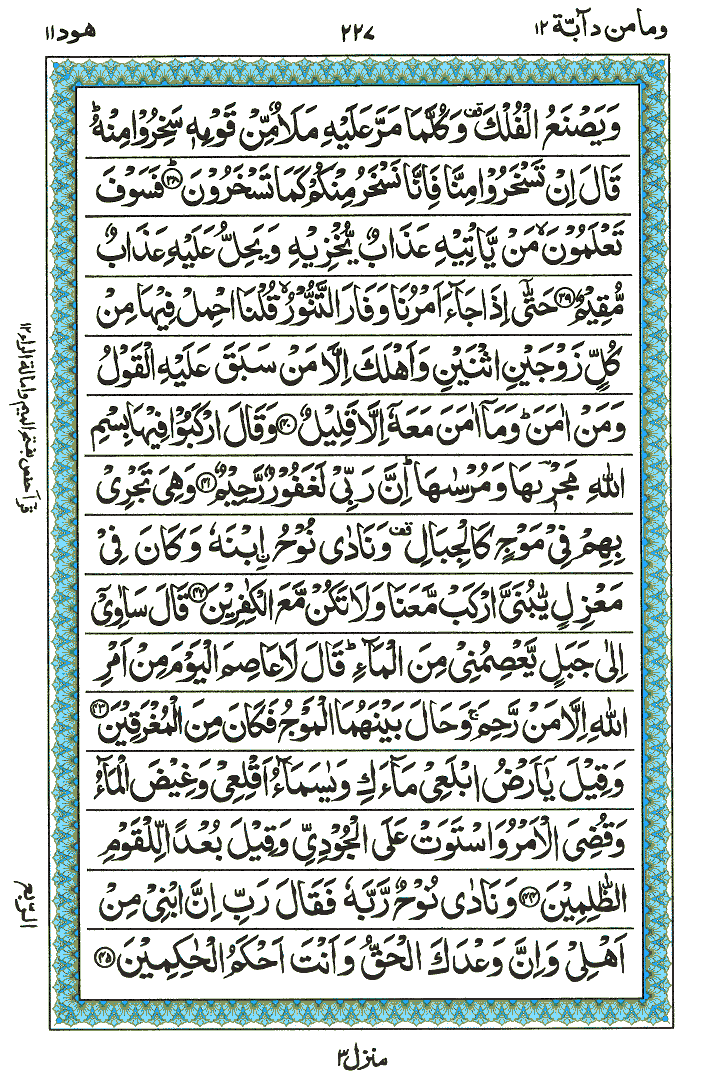 وما من دآبة ١٢
٢٢٧
هود ١١
وَيَصْنَعُ الْفُلْكَ ۣ وَكُلَّمَا مَرَّ عَلَيْهِ مَلَاٌ مِّنْ قَوْمِهٖ سَخِرُوْا مِنْهُ ؕ
قَالَ اِنْ تَسْخَرُوْا مِنَّا فَاِنَّا نَسْخَرُ مِنْكُمْ كَمَا تَسْخَرُوْنَ ؕ﴿۳۸﴾ فَسَوْفَ
تَعْلَمُوْنَ ۙ مَنْ يَّاْتِيْهِ عَذَابٌ يُّخْزِيْهِ وَيَحِلُّ عَلَيْهِ عَذَابٌ
مُّقِيْمٌ ﴿۳۹﴾ حَتّٰۤى اِذَا جَآءَ اَمْرُنَا وَفَارَ التَّنُّوْرُ ۙ قُلْنَا احْمِلْ فِيْهَا مِنْ
كُلٍّ زَوْجَيْنِ اثْنَيْنِ وَاَهْلَكَ اِلَّا مَنْ سَبَقَ عَلَيْهِ الْقَوْلُ
وَمَنْ اٰمَنَ ؕ وَمَاۤ اٰمَنَ مَعَهٗۤ اِلَّا قَلِيْلٌ ﴿۴۰﴾ وَقَالَ ارْكَبُوْا فِيْهَا بِسْمِ
اللّٰهِ مَجْرٖىهَا وَمُرْسٰىهَا ؕ اِنَّ رَبِّىْ لَغَفُوْرٌ رَّحِيْمٌ ﴿۴۱﴾ وَهِىَ تَجْرِىْ
بِهِمْ فِىْ مَوْجٍ كَالْجِبَالِ ۣ وَنَادٰى نُوْحُ اۨبْنَهٗ وَكَانَ فِىْ
مَعْزِلٍ يّٰبُنَىَّ ارْكَبْ مَّعَنَا وَلَا تَكُنْ مَّعَ الْكٰفِرِيْنَ ﴿۴۲﴾ قَالَ سَاٰوِىْۤ
اِلٰى جَبَلٍ يَّعْصِمُنِىْ مِنَ الْمَآءِ ؕ قَالَ لَا عَاصِمَ الْيَوْمَ مِنْ اَمْرِ
اللّٰهِ اِلَّا مَنْ رَّحِمَ ۚ وَحَالَ بَيْنَهُمَا الْمَوْجُ فَكَانَ مِنَ الْمُغْرَقِيْنَ ﴿۴۳﴾
وَقِيْلَ يٰۤاَرْضُ ابْلَعِىْ مَآءَكِ وَيٰسَمَآءُ اَقْلِعِىْ وَغِيْضَ الْمَآءُ
وَقُضِىَ الْاَمْرُ وَاسْتَوَتْ عَلَى الْجُوْدِىِّ وَقِيْلَ بُعْدًا لِّلْقَوْمِ
الظّٰلِمِيْنَ ﴿۴۴﴾ وَنَادٰى نُوْحٌ رَّبَّهٗ فَقَالَ رَبِّ اِنَّ ابْنِىْ مِنْ
اَهْلِىْ وَاِنَّ وَعْدَكَ الْحَقُّ وَاَنْتَ اَحْكَمُ الْحٰكِمِيْنَ ﴿۴۵﴾
قرآ حفص بفتح الميم وامالة الراء ١٢
الربع
منزل ٣